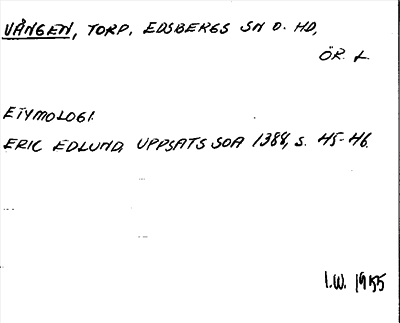 VÅNGEN, TORP, EDSBERGS SN O. HD,
ÖR. L
ETYMOLOGI.
ERIC EDLUND, UPPSATS SOA 1388, S. 45-46.
I.W. 1955